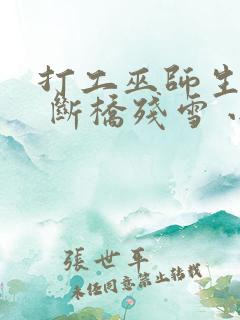 打工巫師生
斷橋殘雪
張世平
未經同意禁止轉載